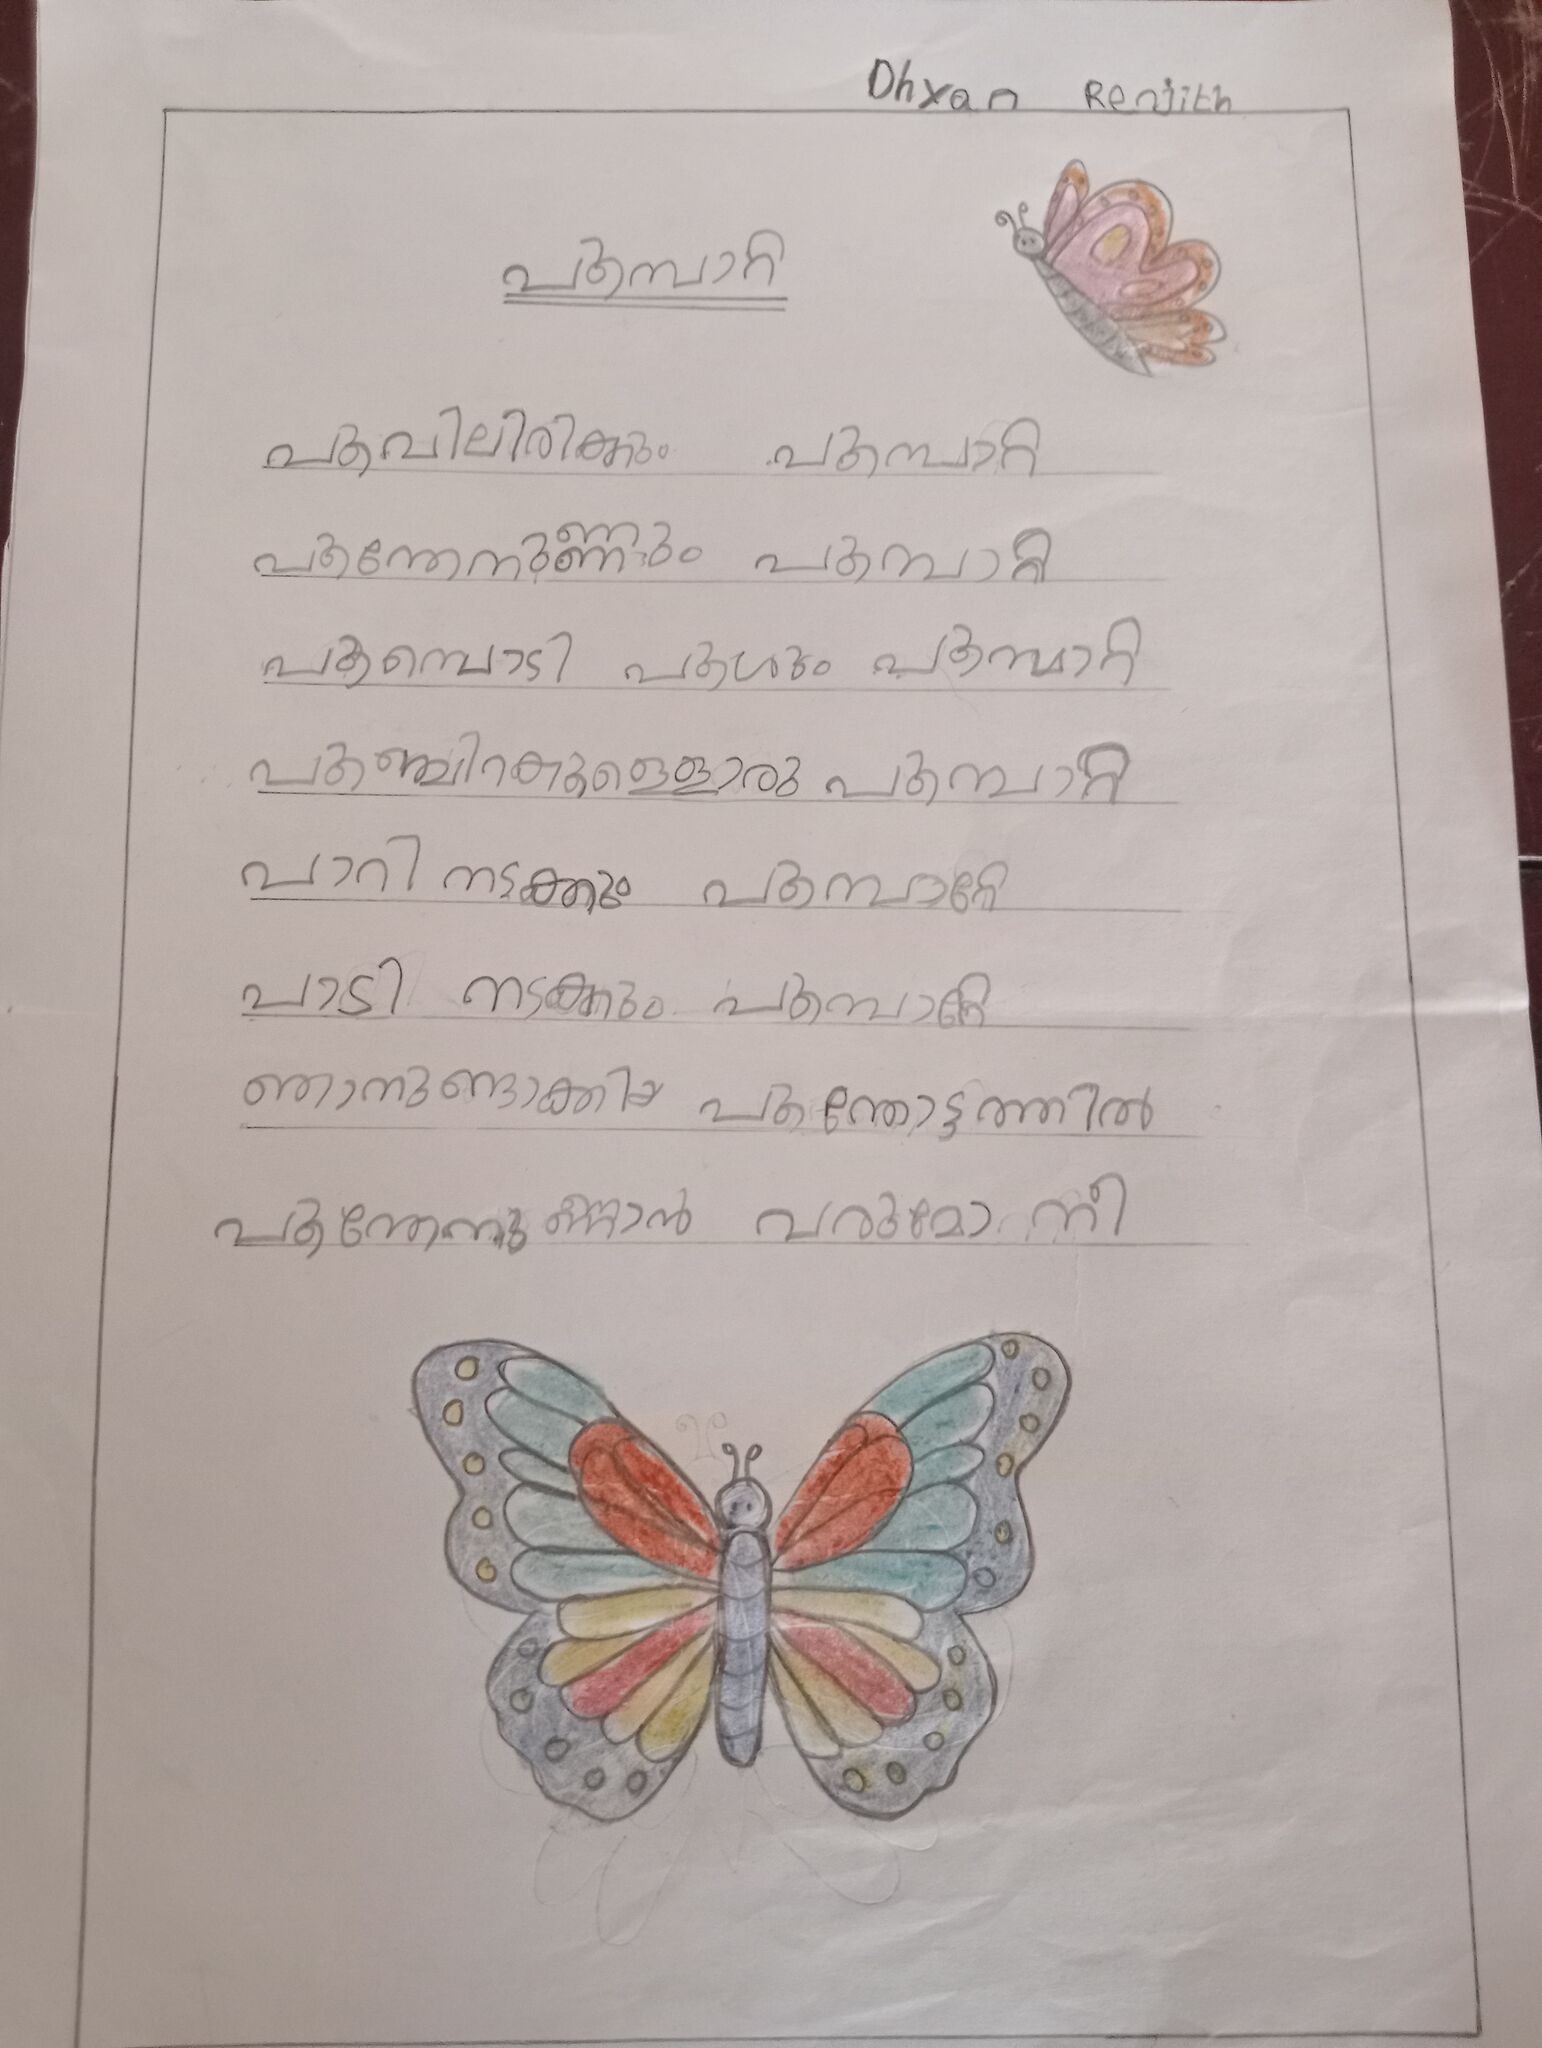 Dhyan Renjith
പൂമ്പാറ്റ
പൂവിലിരിക്കും പൂമ്പാറ്റ
പൂന്തേനുണ്ണും പൂമ്പാറ്റ
പൂമ്പൊടി പൂശും പൂമ്പാറ്റ
പൂഞ്ചിറകുള്ളൊരു പൂമ്പാറ്റ
പാറി നടക്കും പൂമ്പാറ്റേ
പാടി നടക്കും പൂമ്പാറ്റേ
ഞാനുണ്ടാക്കിയ പൂന്തോട്ടത്തിൽ
പൂന്തേനുണ്ണാൻ വരുമോ നീ